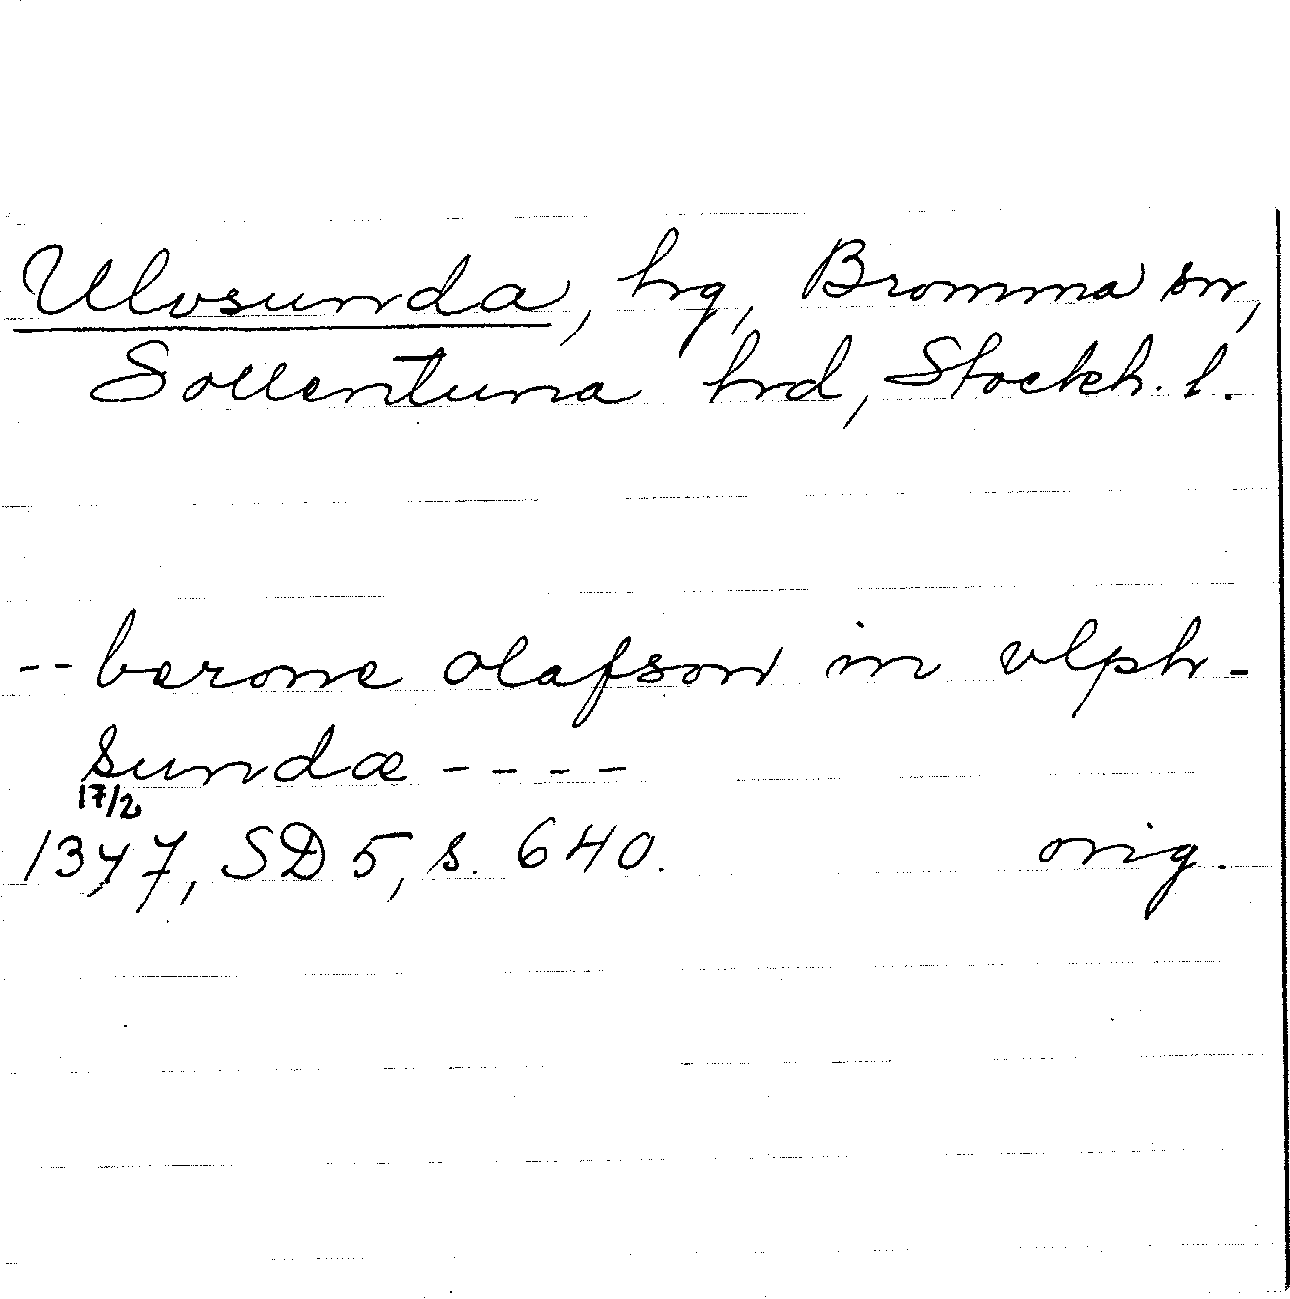 Ulvsunda, hrg, Bromma sn,
Sollentuna hrd, Stockh. l.
-- berone olafson in vlph-
sundæ ----
17/2
1347, SD 5, s. 640. orig.